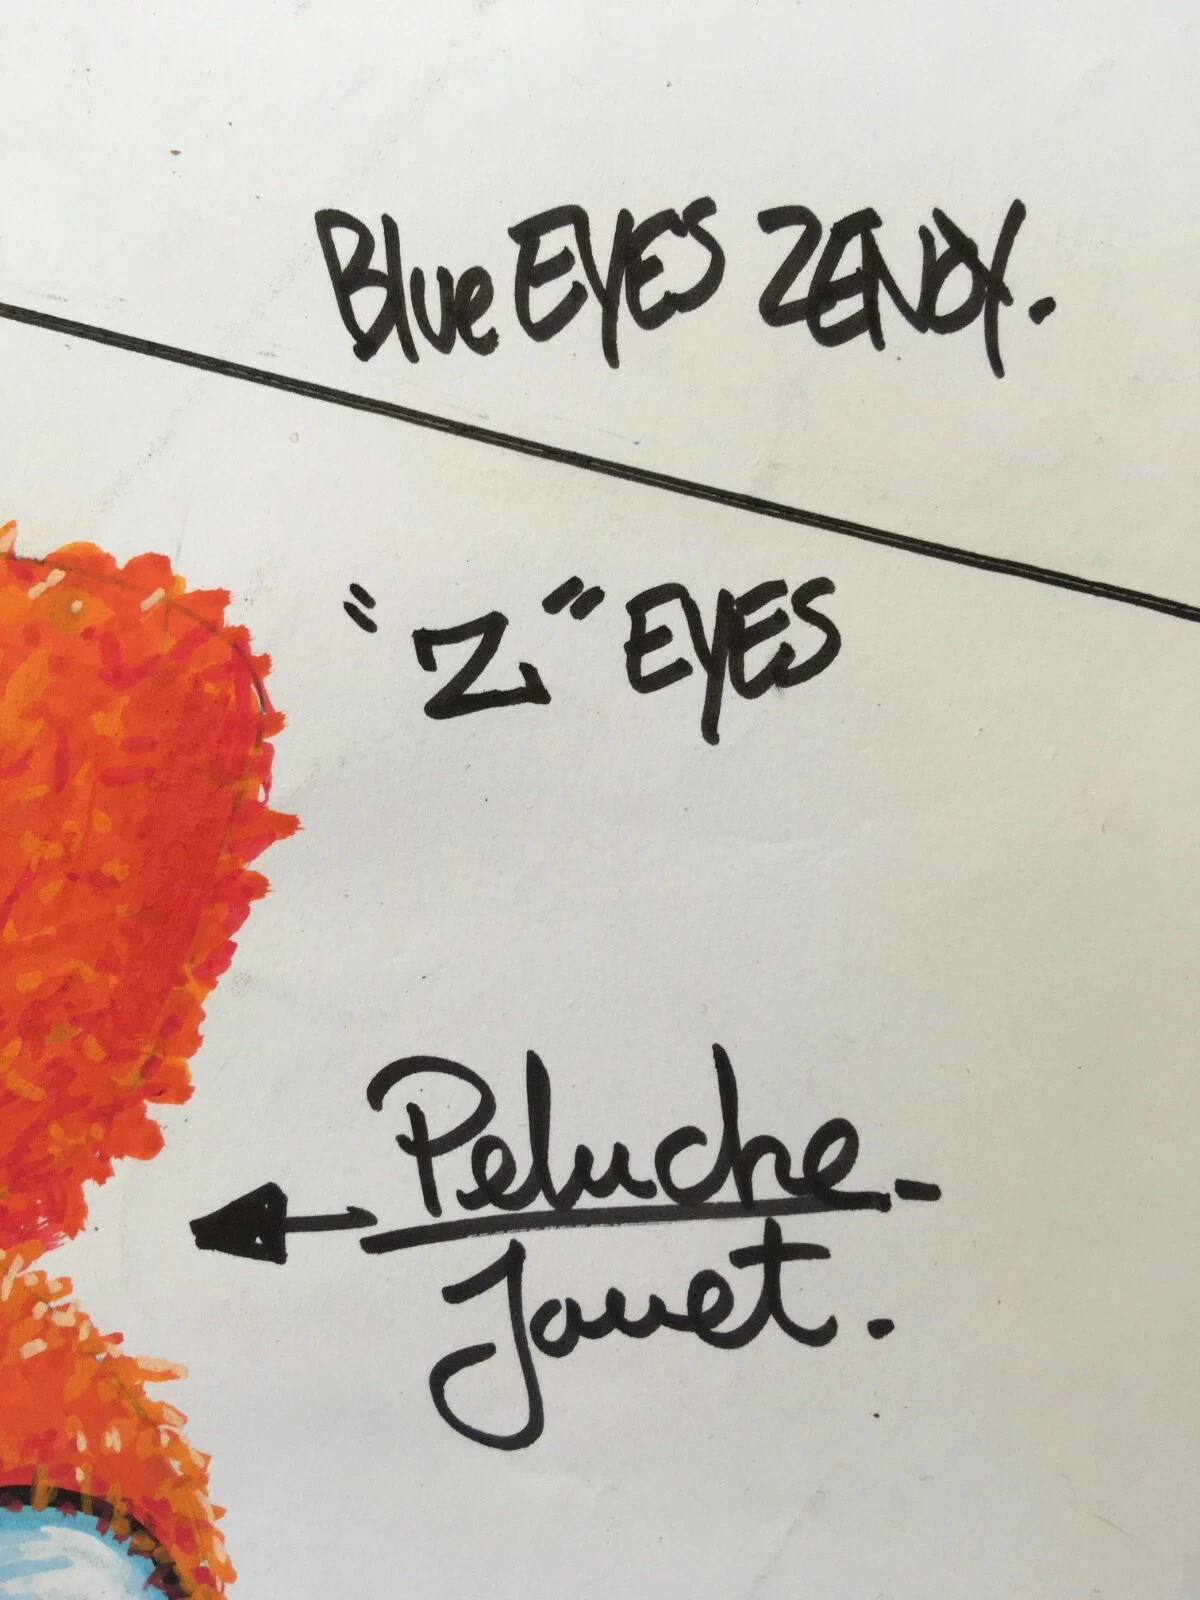 Blue EYES ZENOX.
"Z" EYES
Peluche.-
Jouet.